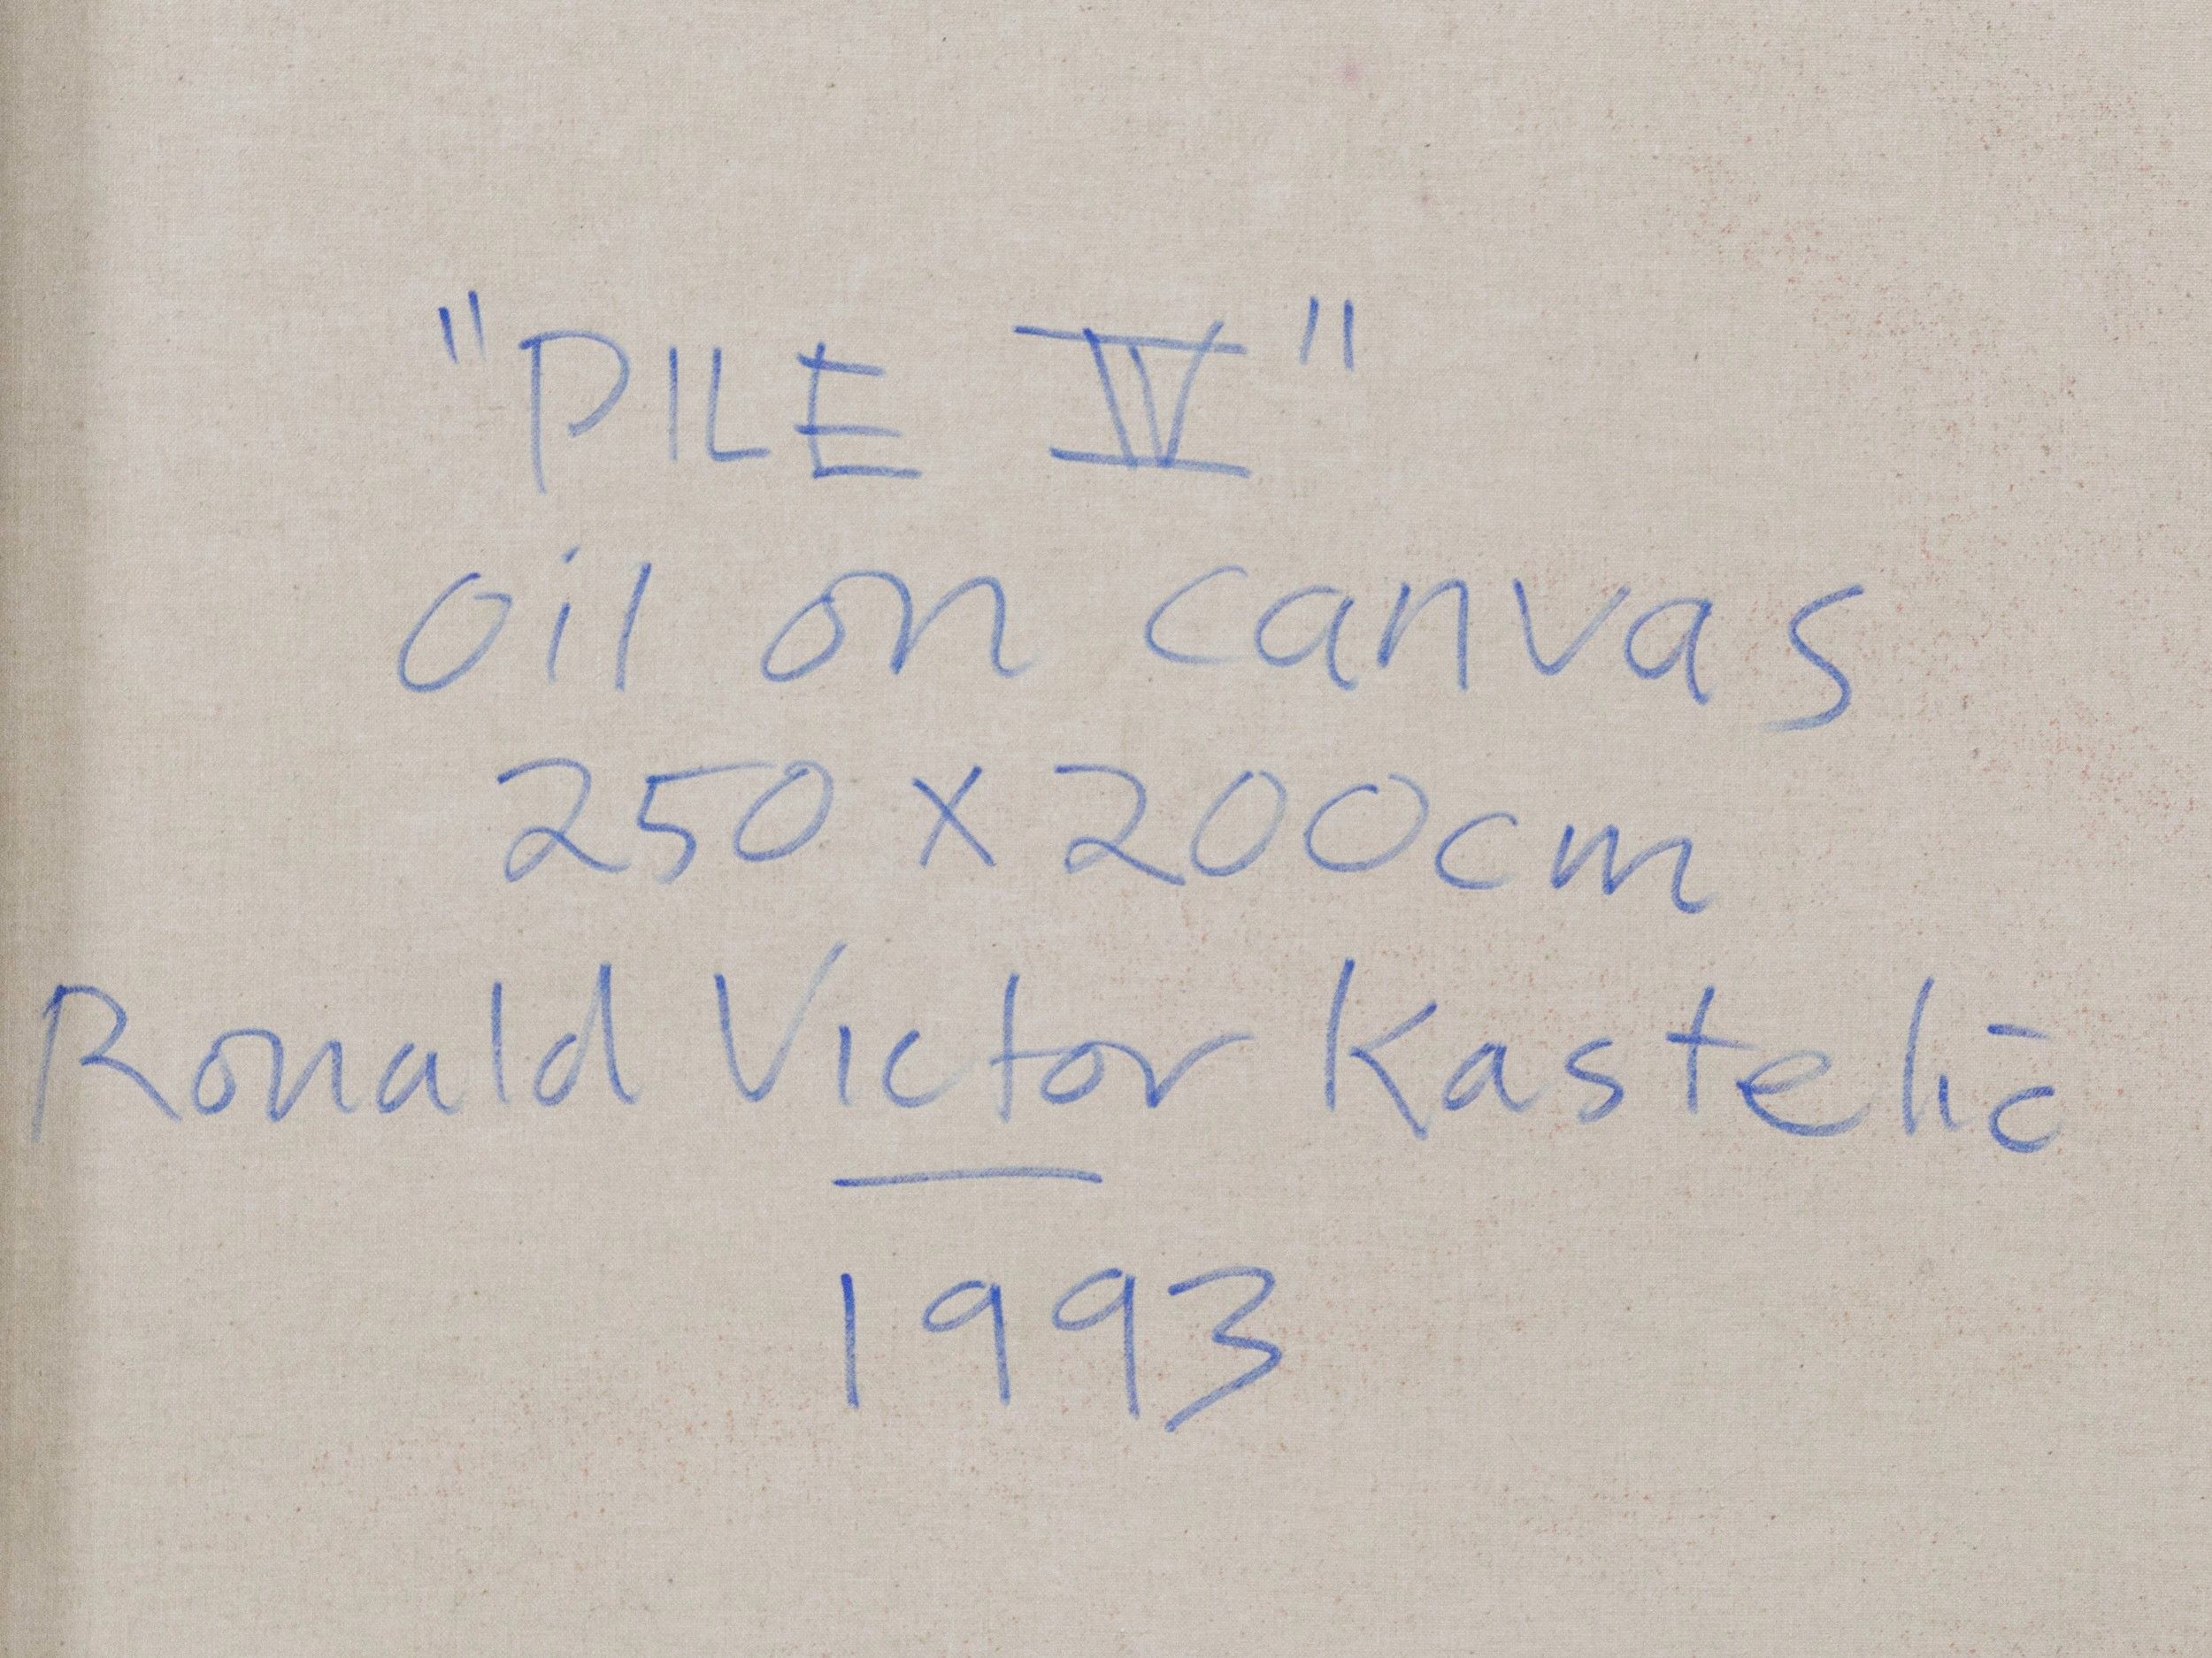 "PILE IV"
oil on canvas
250 x 200cm
Ronald Victor Kastelic
1993